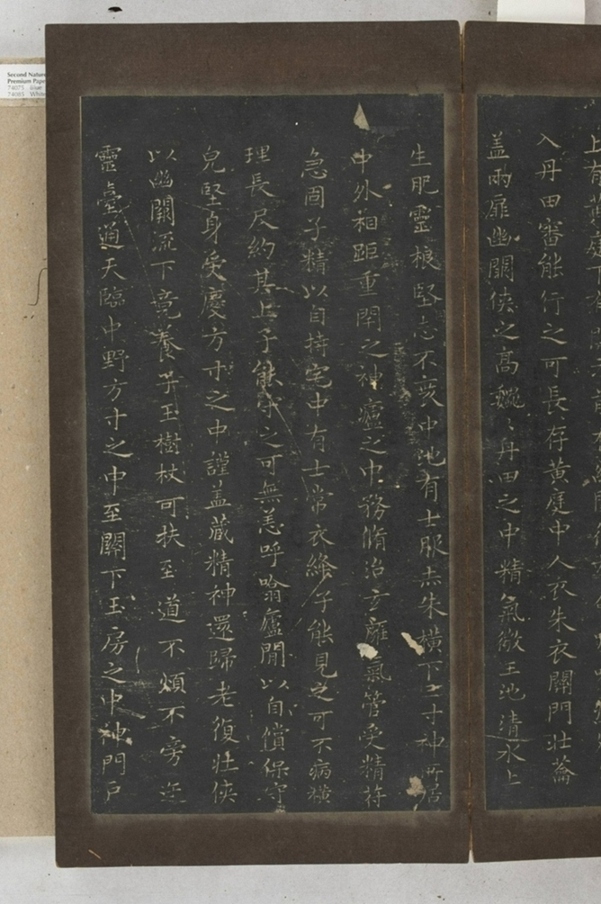 Second Natur
Premium Pape
上有黃庭下有關
入丹田審能行之可長存黃庭中人衣朱衣關門壯籥
盖兩扉幽闕俠之高巍〻丹田之中精氣微玉池清水上
生肥靈根堅志不衰中池有士服赤朱橫下三寸神所居
中外相距重閇之神廬之中務脩治玄廱氣管受精符
急固子精以自持宅中有士常衣絳子能見之可不病橫
理長尺約其上子能守之可無恙呼噏廬間以自償保守
皃堅身受慶方寸之中謹盖藏精神還歸老復壯俠
以幽闕流下竟養子玉樹杖可扶至道不煩不旁迕
靈臺通天臨中野方寸之中至關下玉房之中神門戶